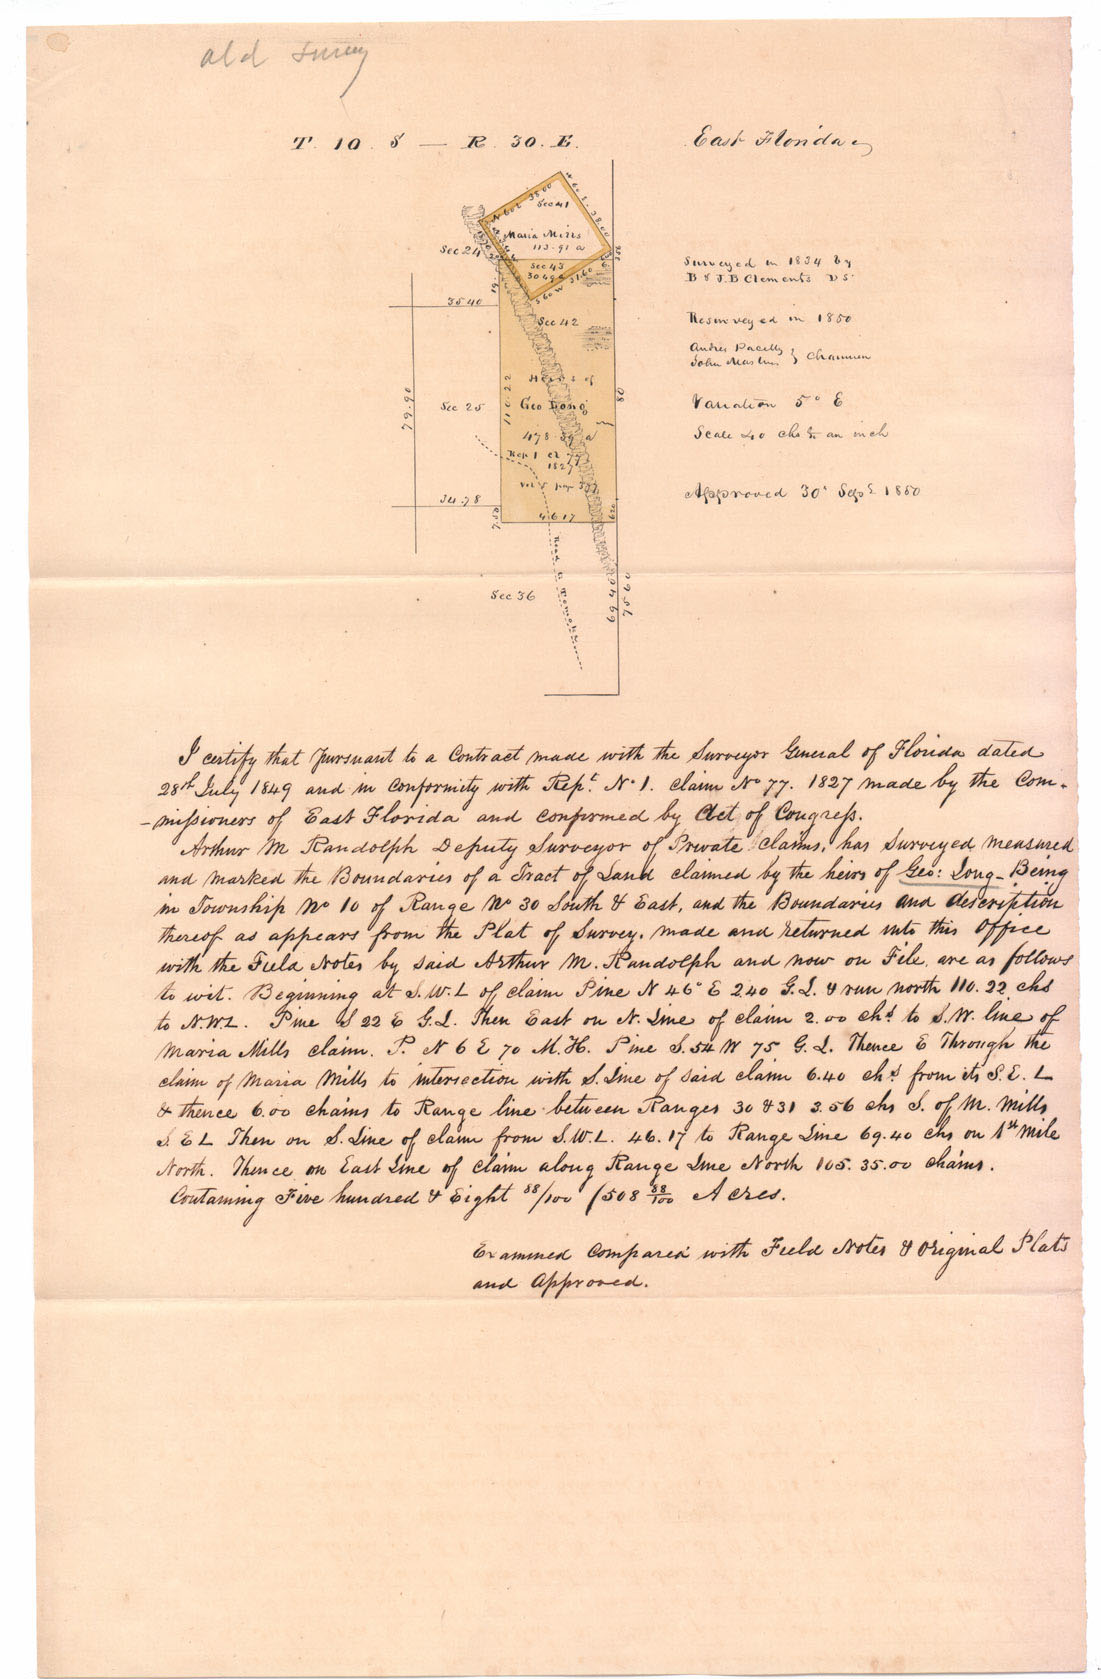 old survey
T. 10. S — R. 30. E.
East Florida
Sec 41
Maria Mills
113.91 a
Sec 24
Sec 43
35 40
Sec 42
Heirs of
Sec 25
110.22
Geo Long
79.90
80
478.39 a
Rep 1 cl 77
1827
34.78
7.50
46 17
Road to Tomoka
Sec 36
69.40
75 60
Surveyed in 1834 by
B & J.B Clements D S.
Resurveyed in 1850
Andres Pacetty
John Masters } Chainmen
Variation 5° E
Scale 40 chs to an inch
Approved 30th Sept 1850
I certify that pursuant to a Contract made with the Surveyor General of Florida dated
28th July 1849 and in conformity with Rept. No 1. claim No 77. 1827 made by the Com-
-missioners of East Florida and confirmed by Act of Congress.
Arthur M Randolph Deputy Surveyor of Private claims, has Surveyed measured
and marked the Boundaries of a Tract of Land claimed by the heirs of Geo: Long - Being
in Township No 10 of Range No 30 South & East, and the Boundaries and description
thereof as appears from the Plat of Survey, made and returned into this Office
with the Field Notes by said Arthur M. Randolph and now on File, are as follows
to wit. Beginning at S.W.L of claim Pine N 46° E 2.40 G.L. & run north 110.22 chs
to N.W.L. Pine S 22 E G.L. Then East on N. Line of claim 2.00 chs to S.W. line of
Maria Mills claim. P. N 6 E 70 M.H. Pine S.54 W 75 G.L. Thence E Through the
claim of Maria Mills to intersection with S. Line of said claim 6.40 chs from its S.E. L
& thence 6.00 chains to Range line between Ranges 30 & 31 3.56 chs S. of M. Mills
S.E L Then on S. Line of claim from S.W.L. 46.17 to Range Line 69.40 chs on 1st Mile
North. Thence on East Line of claim along Range Line North 105. 35.00 chains.
Containing Five hundred & Eight 88/100 (508 88/100 Acres.
Examined Compared with Field Notes & Original Plats
and Approved.